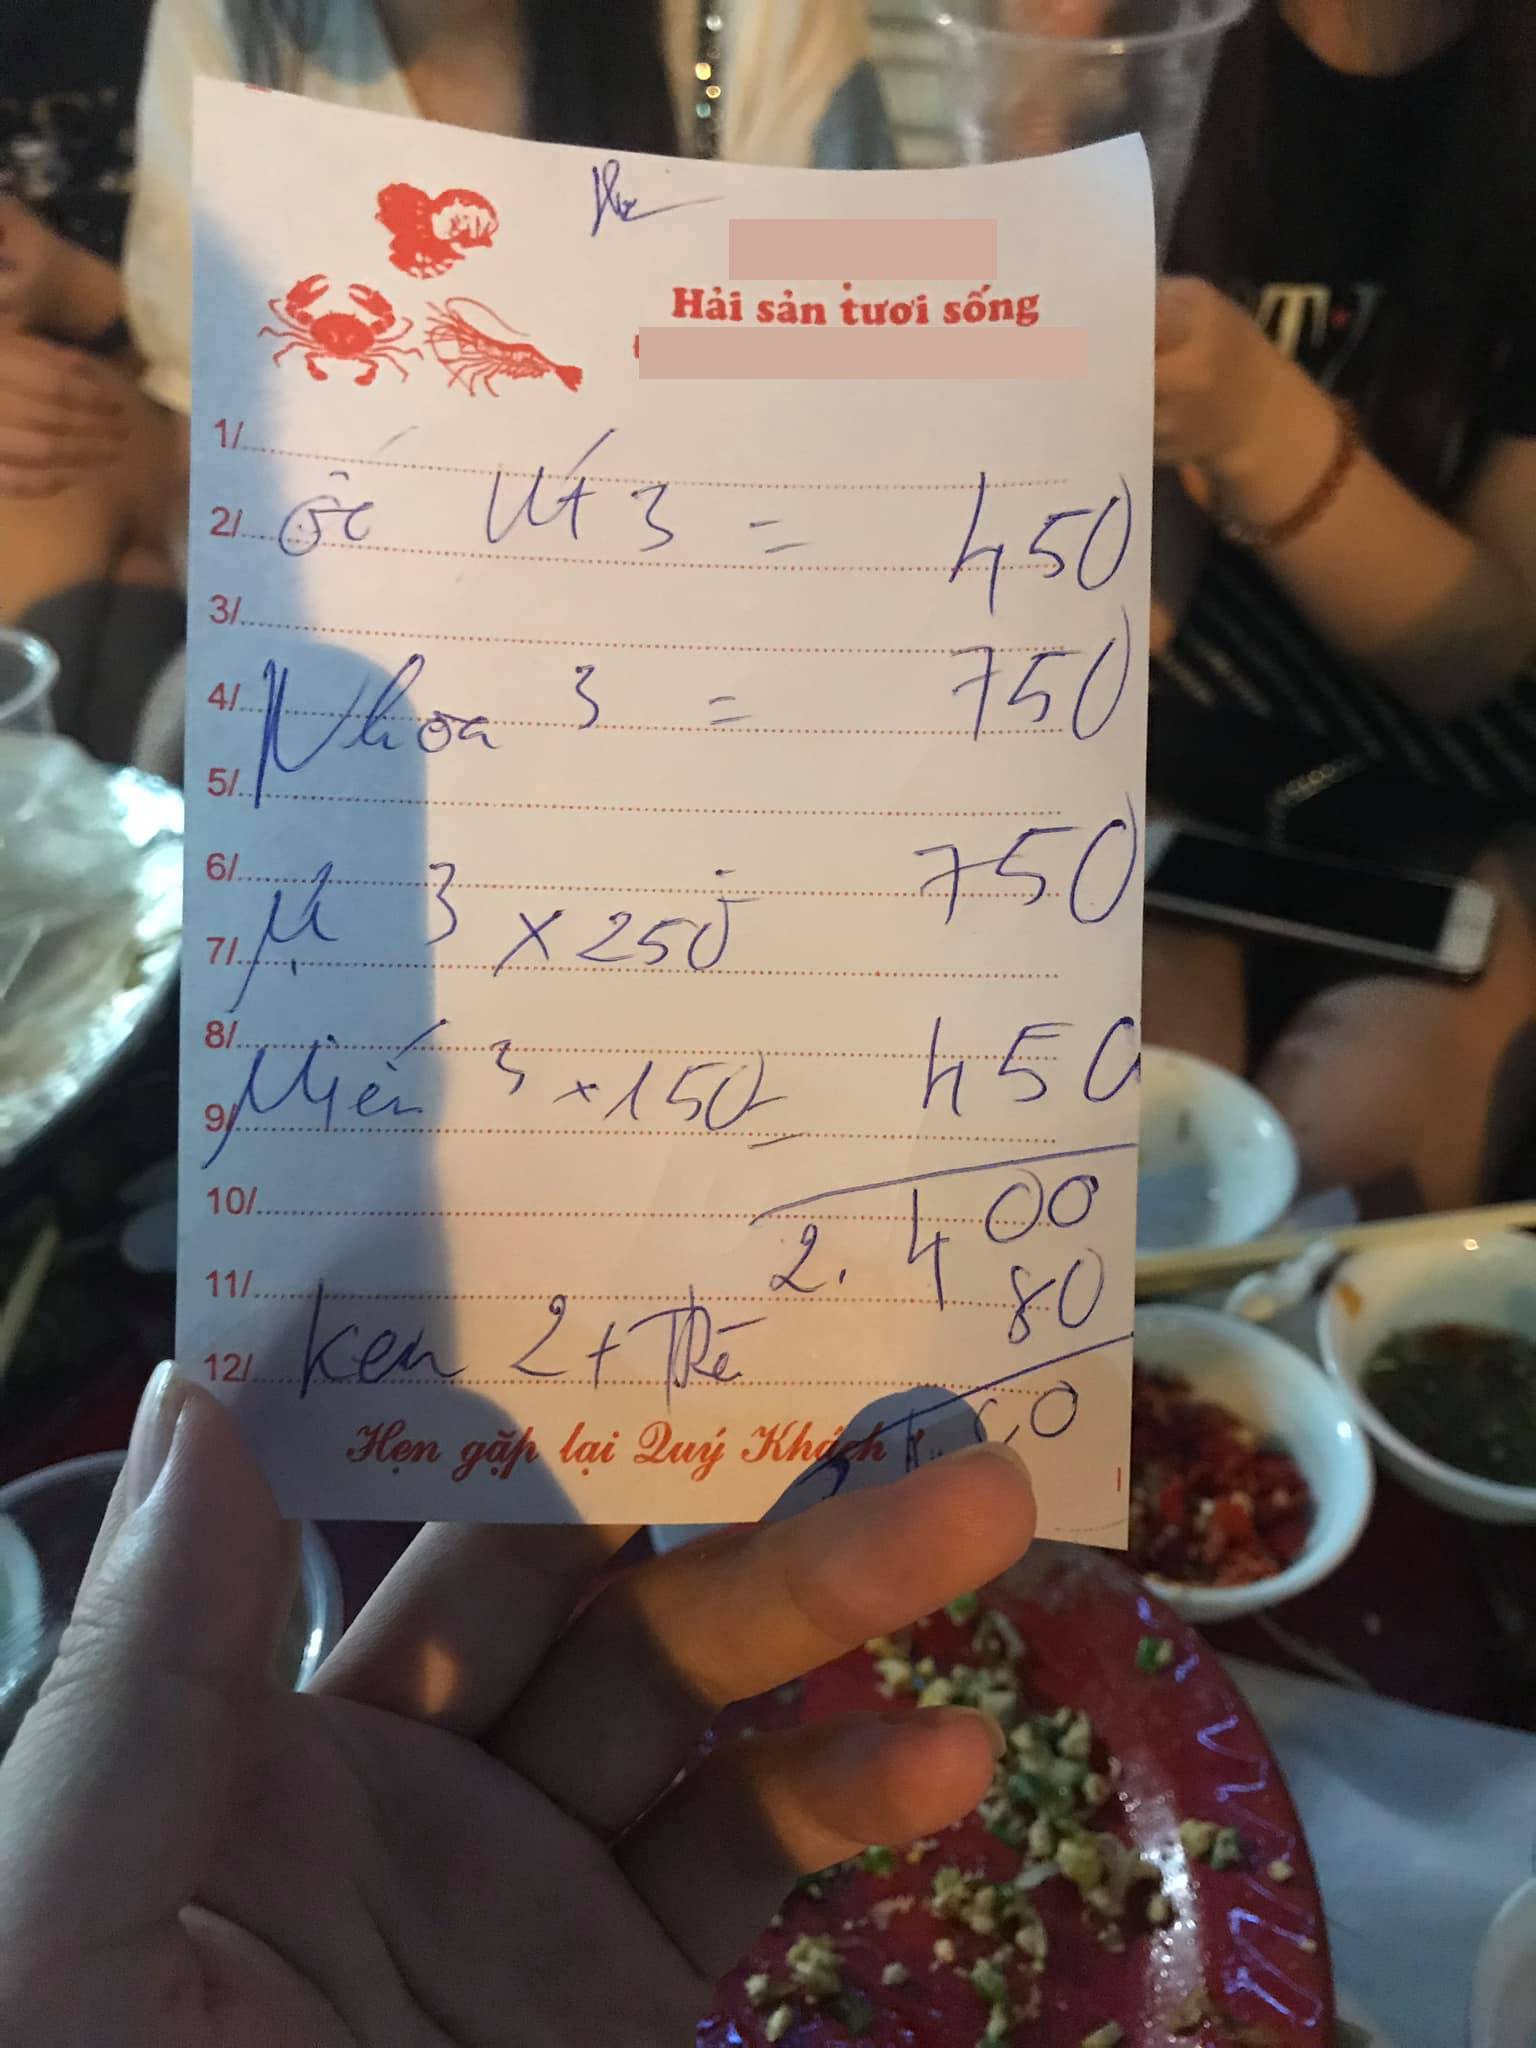 Hải sản tươi sống
1/
2/ ốc út 3 = 450
3/
4/ Nhoa 3 = 750
5/
6/ 750
7/ 3 x 250
8/
9/ Miến 3 x 150 = 450
10/ 2.400
11/ 80
12/ Ken 2 +
Hẹn gặp lại Quý Khách